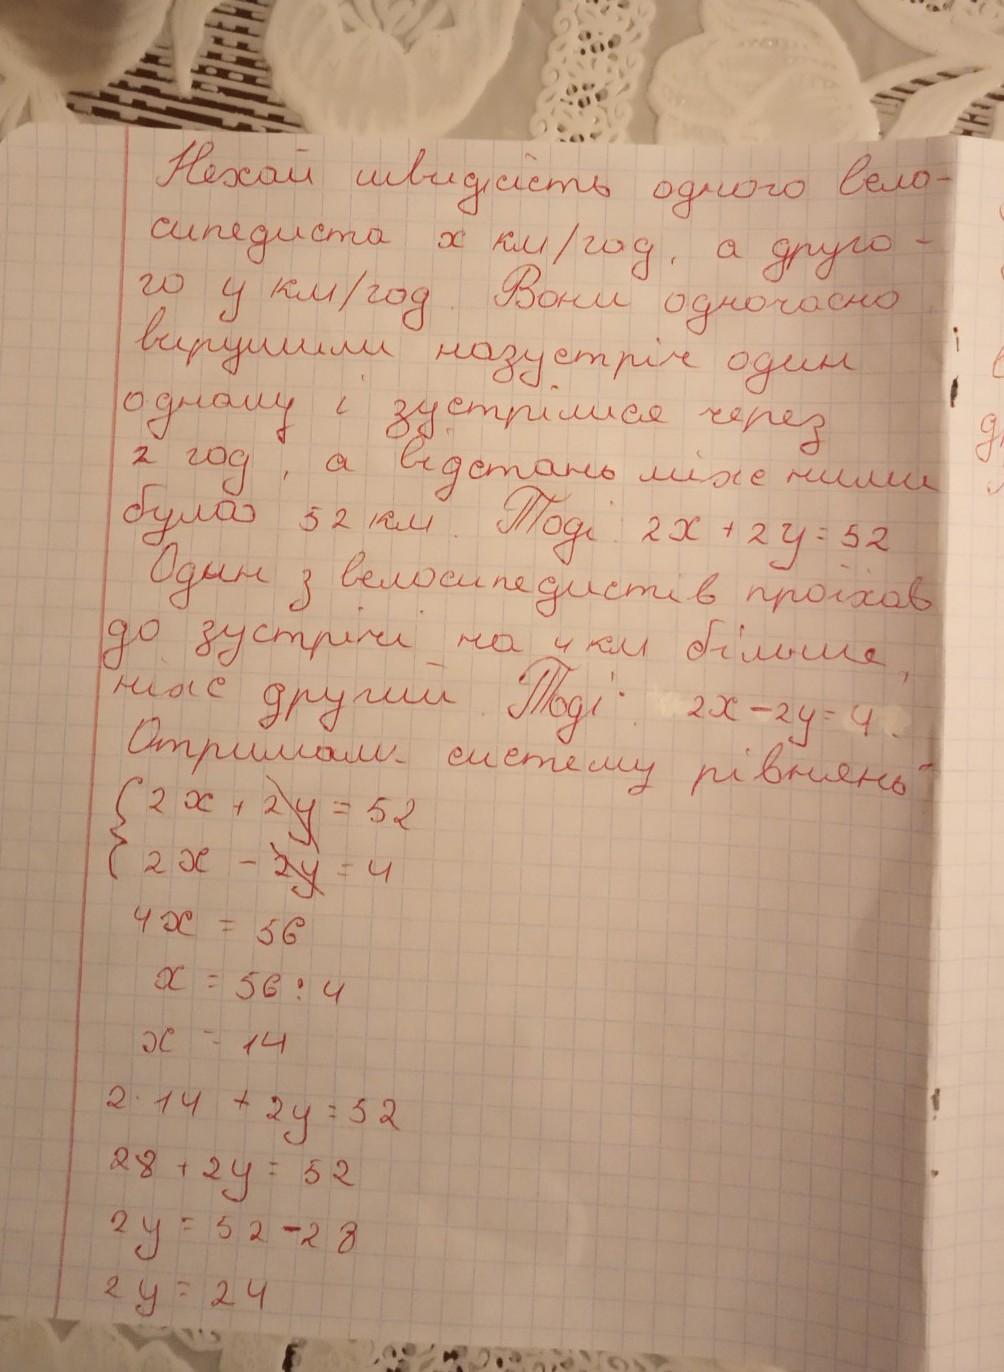 Нехай швидкість одного вело-
сипедиста x км/год, а друго-
го y км/год. Вони одночасно
вирушили назустріч один
одному і зустрілися через
2 год, а відстань між ними
була 52 км. Тоді: 2x + 2y = 52
Один з велосипедистів проїхав
до зустрічі на 4 км більше,
ніж другий. Тоді: 2x - 2y = 4.
Отримали систему рівнянь:
2x + 2y = 52
2x - 2y = 4
4x = 56
x = 56 : 4
x = 14
2·14 + 2y = 52
28 + 2y = 52
2y = 52 - 28
2y = 24